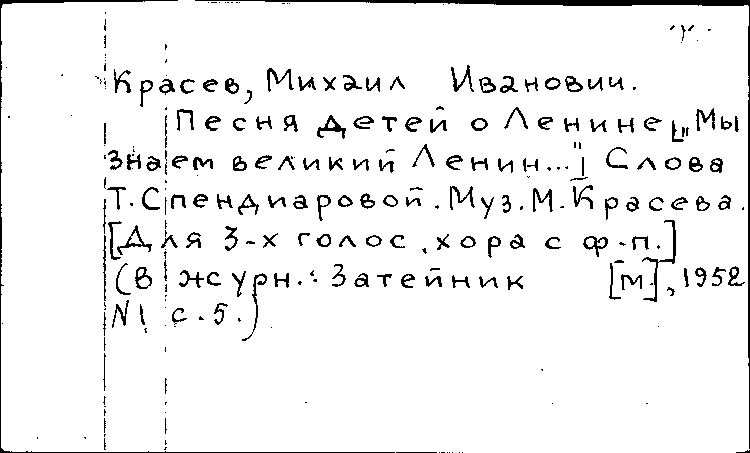 Красев, Михаил Иванович.
Песня детей о Ленине ["Мы
знаем великий Ленин..."] Слова
Т. Спендиаровой. Муз. М. Красева.
[Для 3-х голос. хора с ф.-п.]
(В журн.: Затейник [М.], 1952
N1 с. 5.)